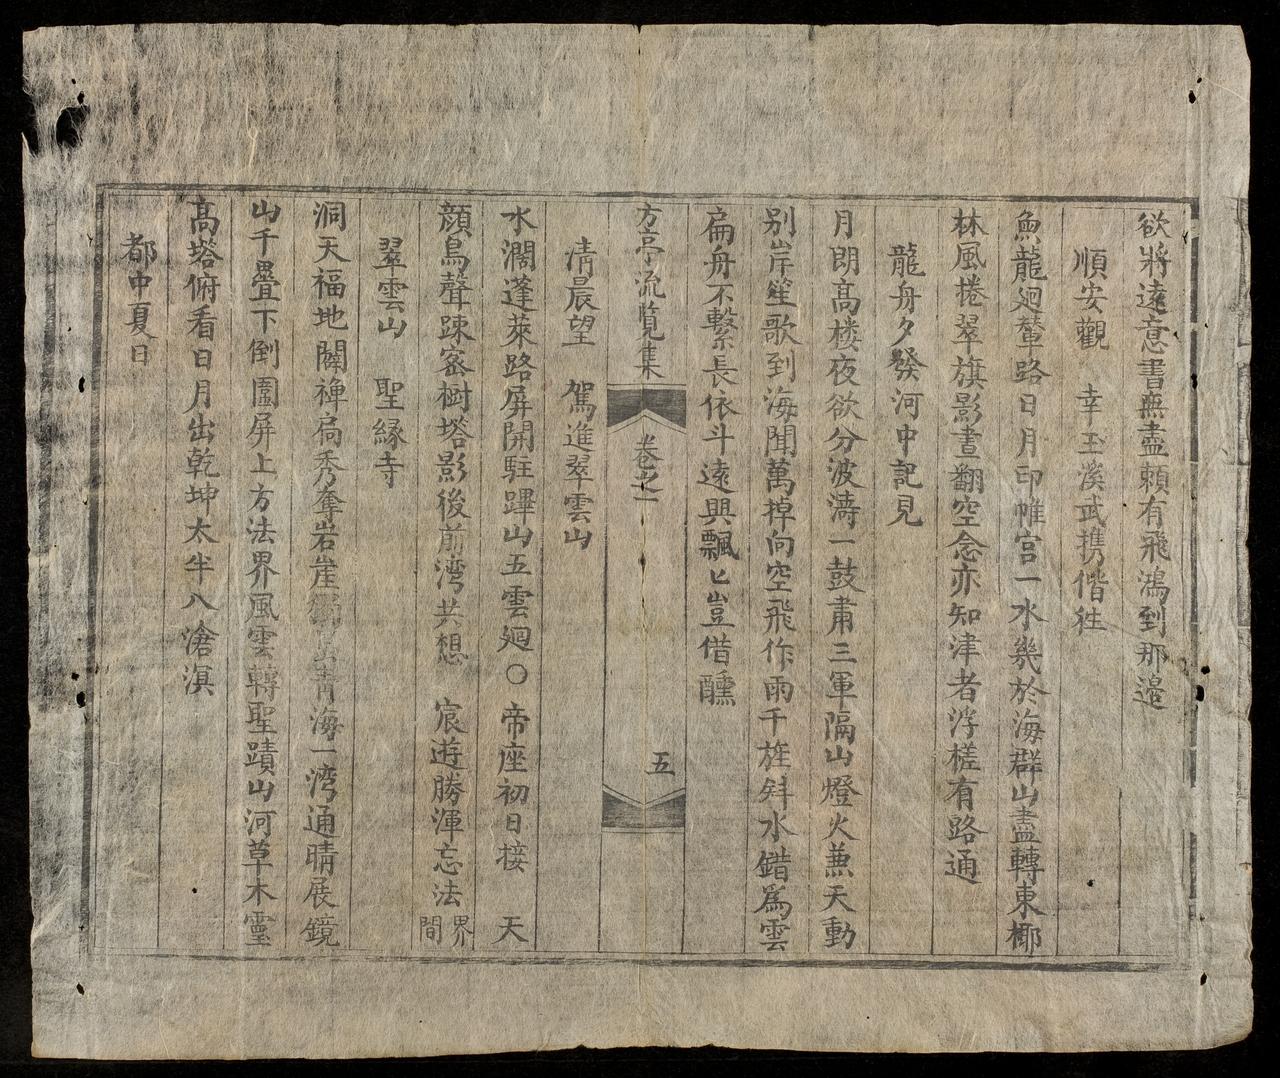 欲將遠意書無盡頼有飛鴻到那邉
順安觀 幸玉溪武携偕徃
魚龍廻輦路日月印帷宫一水幾於海群山盡轉東椰
林風捲翠旗影晝翻空念亦知津者浮槎有路通
龍舟夕發河中記見
月朗髙楼夜欲分波濤一鼓肅三軍隔山燈火蒹天動
别岸笙歌到海聞萬掉向空飛作雨千旌斜水錯爲雲
扁舟不繫長依斗遠興飄匕豈借醺
方亭流覧集 卷之一 五
清晨望 駕進翠雲山
水濶蓬萊路屏開駐蹕山五雲廻○帝座初日接 天
顔鳥聲踈宻樹塔影後前湾共想 宸遊勝渾忘法
界
間
翠雲山 聖縁寺
洞天福地闢禅扃秀奪岩崖 青海一湾通晴展鏡
山千疊下倒圍屏上方法界風雲轉聖蹟山河草木霊
髙塔俯看日月出乾坤太半八滄溟
都中夏日